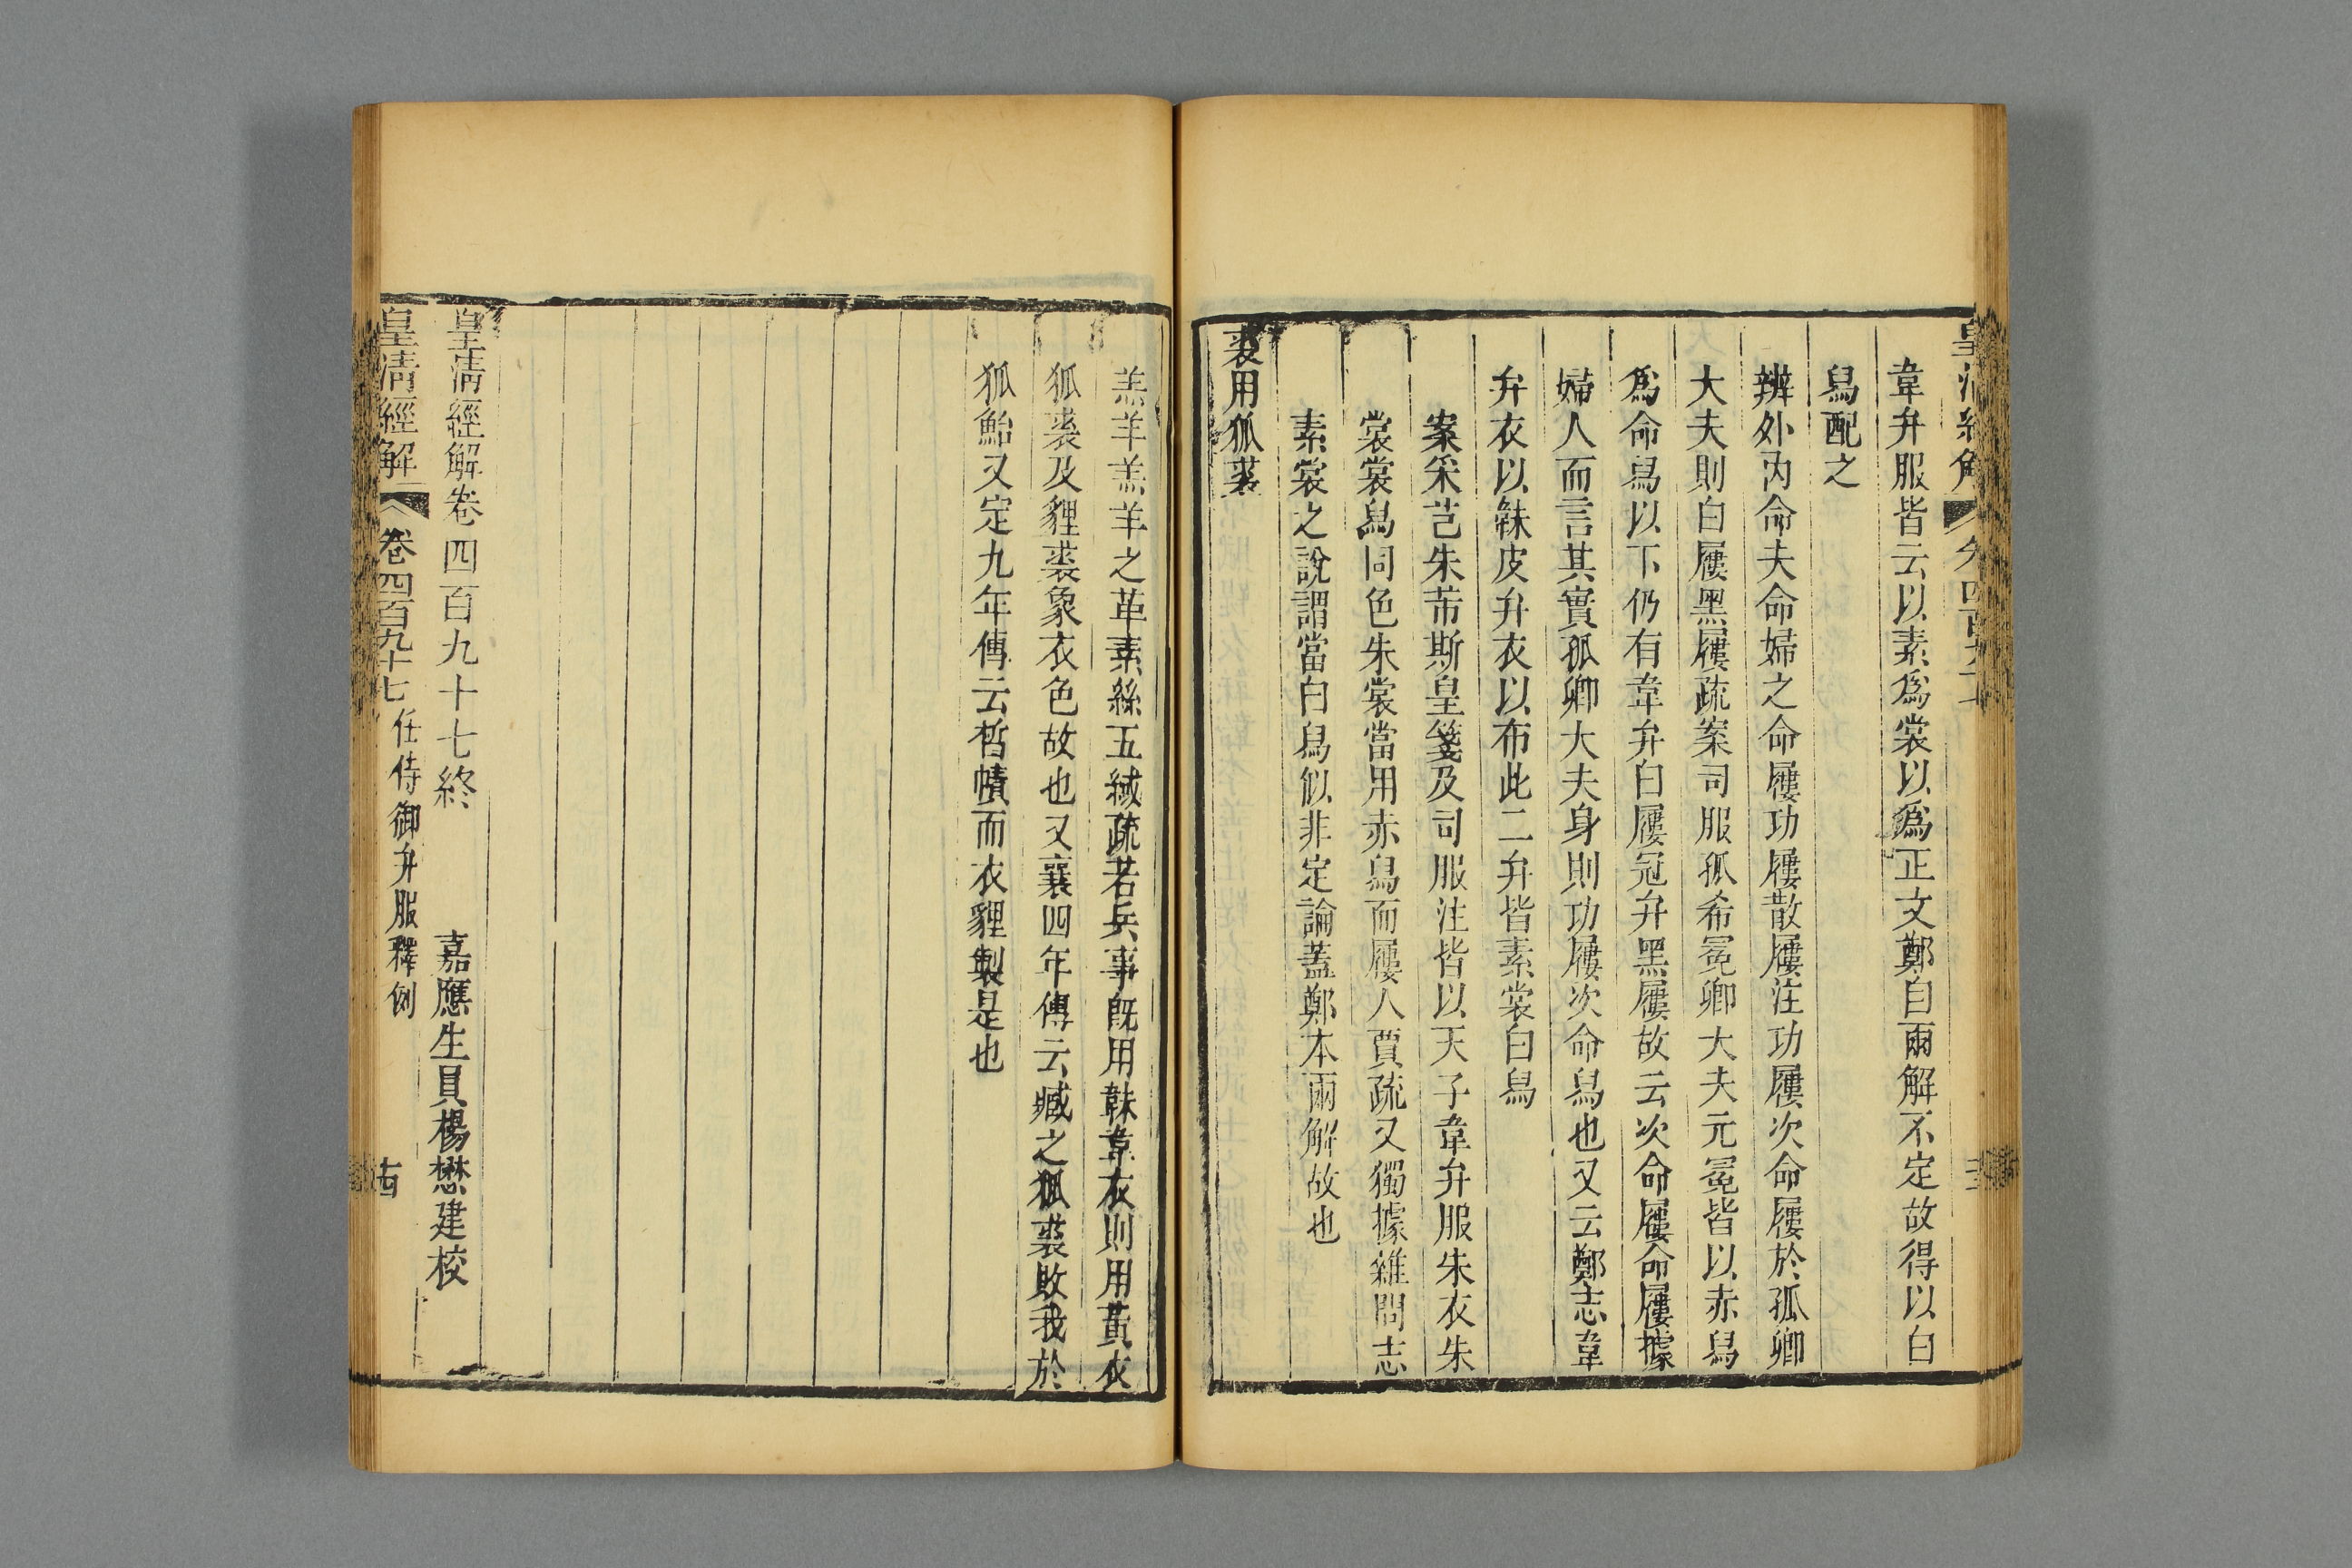 韋弁服皆云以素爲裳以爲正文鄭自兩解不定故得以白
舄配之
辨外內命夫命婦之命屨功屨散屨注功屨次命屨於孤卿
大夫則白屨黑屨疏案司服孤希冕卿大夫元冕皆以赤舄
爲命舄以下仍有韋弁白屨冠弁黑屨故云次命屨命屨據
婦人而言其實孤卿大夫身則功屨次命舄也又云鄭志韋
弁衣以韎皮弁衣以布此二弁皆素裳白舄
案采芑朱芾斯皇箋及司服注皆以天子韋弁服朱衣朱
裳裳舄同色朱裳當用赤舄而屨人賈疏又獨據雜問志
素裳之說謂當白舄似非定論蓋鄭本兩解故也
裘用狐裘
羔羊羔羊之革素絲五緎疏若兵事旣用韎韋衣則用黃衣
狐裘及貍裘象衣色故也又襄四年傳云臧之狐裘敗我於
狐鮐又定九年傳云晳幘而衣貍製是也
皇淸經解卷四百九十七終
嘉應生員楊懋建校
皇淸經解 卷四百九十七 任侍御弁服釋例